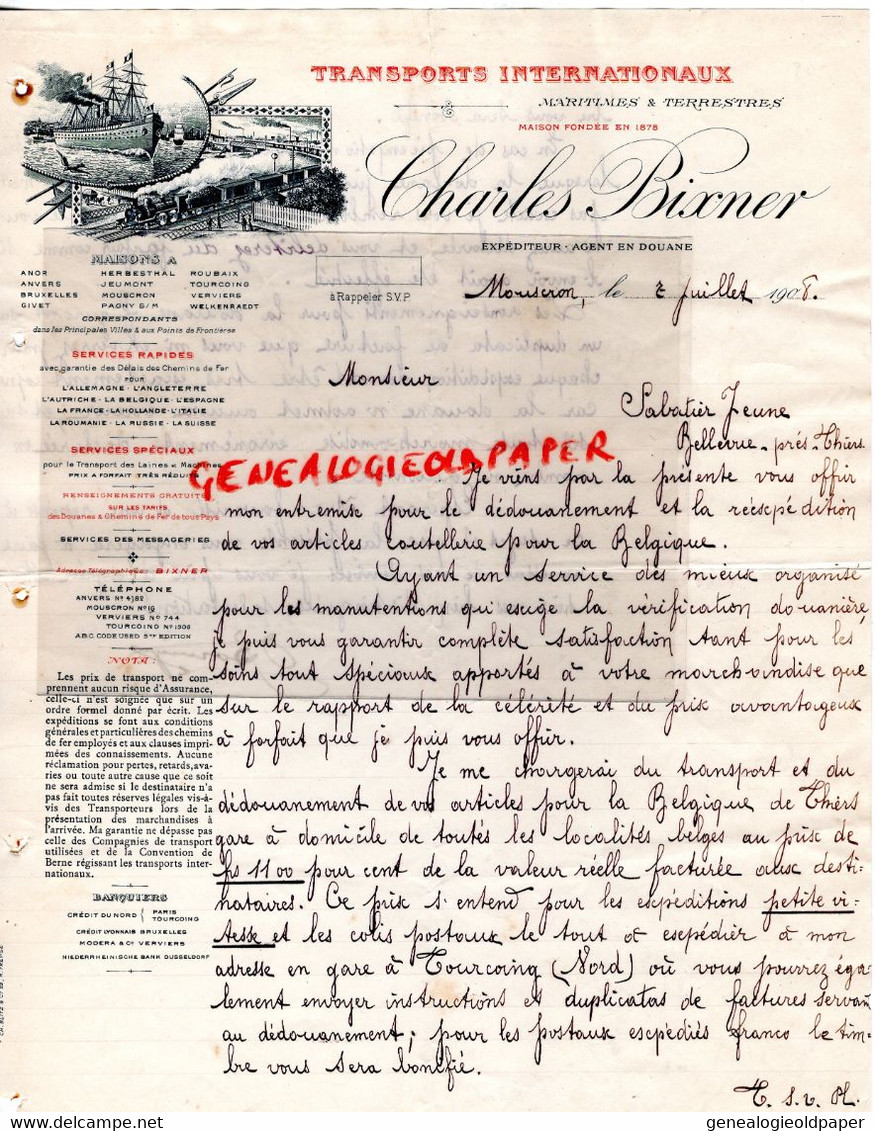 TRANSPORTS INTERNATIONAUX
MARITIMES & TERRESTRES
MAISON FONDÉE EN 1878
Charles Bixner
EXPÉDITEUR - AGENT EN DOUANE
MAISONS A
ANOR HERBESTHAL ROUBAIX
ANVERS JEUMONT TOURCOING
BRUXELLES MOUSCRON VERVIERS
GIVET PAGNY S/M WELKENRAEDT
CORRESPONDANTS
dans les Principales Villes & aux Points de Frontières
SERVICES RAPIDES
avec garantie des Délais des Chemins de Fer
POUR
L'ALLEMAGNE - L'ANGLETERRE
L'AUTRICHE - LA BELGIQUE - L'ESPAGNE
LA FRANCE - LA HOLLANDE - L'ITALIE
LA ROUMANIE - LA RUSSIE - LA SUISSE
SERVICES SPÉCIAUX
pour le Transport des Laines & Machines
PRIX A FORFAIT TRÈS RÉDUITS
RENSEIGNEMENTS GRATUITS
SUR LES TARIFS
des Douanes & Chemins de Fer de tous Pays
SERVICES DES MESSAGERIES
Adresse Télégraphique: BIXNER
TÉLÉPHONE
ANVERS Nº 4182
MOUSCRON Nº 16
VERVIERS Nº 744
TOURCOING Nº 1306
A.B.C. CODE USED 5TH EDITION
NOTA:
Les prix de transport ne com-
prennent aucun risque d'Assurance,
celle-ci n'est soignée que sur un
ordre formel donné par écrit. Les
expéditions se font aux conditions
générales et particulières des chemins
de fer employés et aux clauses impri-
mées des connaissements. Aucune
réclamation pour pertes, retards, ava-
ries ou toute autre cause que ce soit
ne sera admise si le destinataire n'a
pas fait toutes réserves légales vis-à-
vis des Transporteurs lors de la
présentation des marchandises à
l'arrivée. Ma garantie ne dépasse pas
celle des Compagnies de transport
utilisées et de la Convention de
Berne régissant les transports inter-
nationaux.
BANQUIERS
CRÉDIT DU NORD { PARIS
TOURCOING
CRÉDIT LYONNAIS BRUXELLES
MODERA & Cº VERVIERS
NIEDERRHEINISCHE BANK DUSSELDORF
à Rappeler S.V.P
Mouscron, le 2 Juillet 1908.
Monsieur
Sabatier Jeune
Bellevue - près - Thiers
GENEALOGIEOLDPAPER
Je viens par la présente vous offrir
mon entremise pour le dédouanement et la réexpédition
de vos articles coutellerie pour la Belgique.
Ayant un service des mieux organisé
pour les manutentions qui exige la vérification douanière,
je puis vous garantir complète satisfaction tant pour les
soins tout spéciaux apportés à votre marchandise que
sur le rapport de la célérité et du prix avantageux
à forfait que je puis vous offrir.
Je me chargerai du transport et du
dédouanement de vos articles pour la Belgique de Thiers
gare à domicile de toutes les localités belges au prix de
frs 11 00 pour cent de la valeur réelle facturée aux desti-
nataires. Ce prix s'entend pour les expéditions petite vi-
tesse et les colis postaux le tout à expédier à mon
adresse en gare à Tourcoing (Nord) où vous pourrez éga-
lement envoyer instructions et duplicatas de factures servant
au dédouanement; pour les postaux expédiés franco le tim-
bre vous sera bonifié.
T. S. v. Pl.
genealogieoldpaper